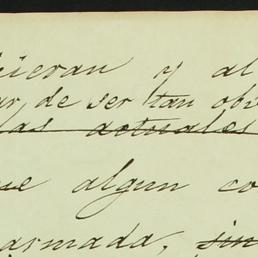 icieran y al
ar, de ser tan obi
las actuales
ue algun co
armada, sin